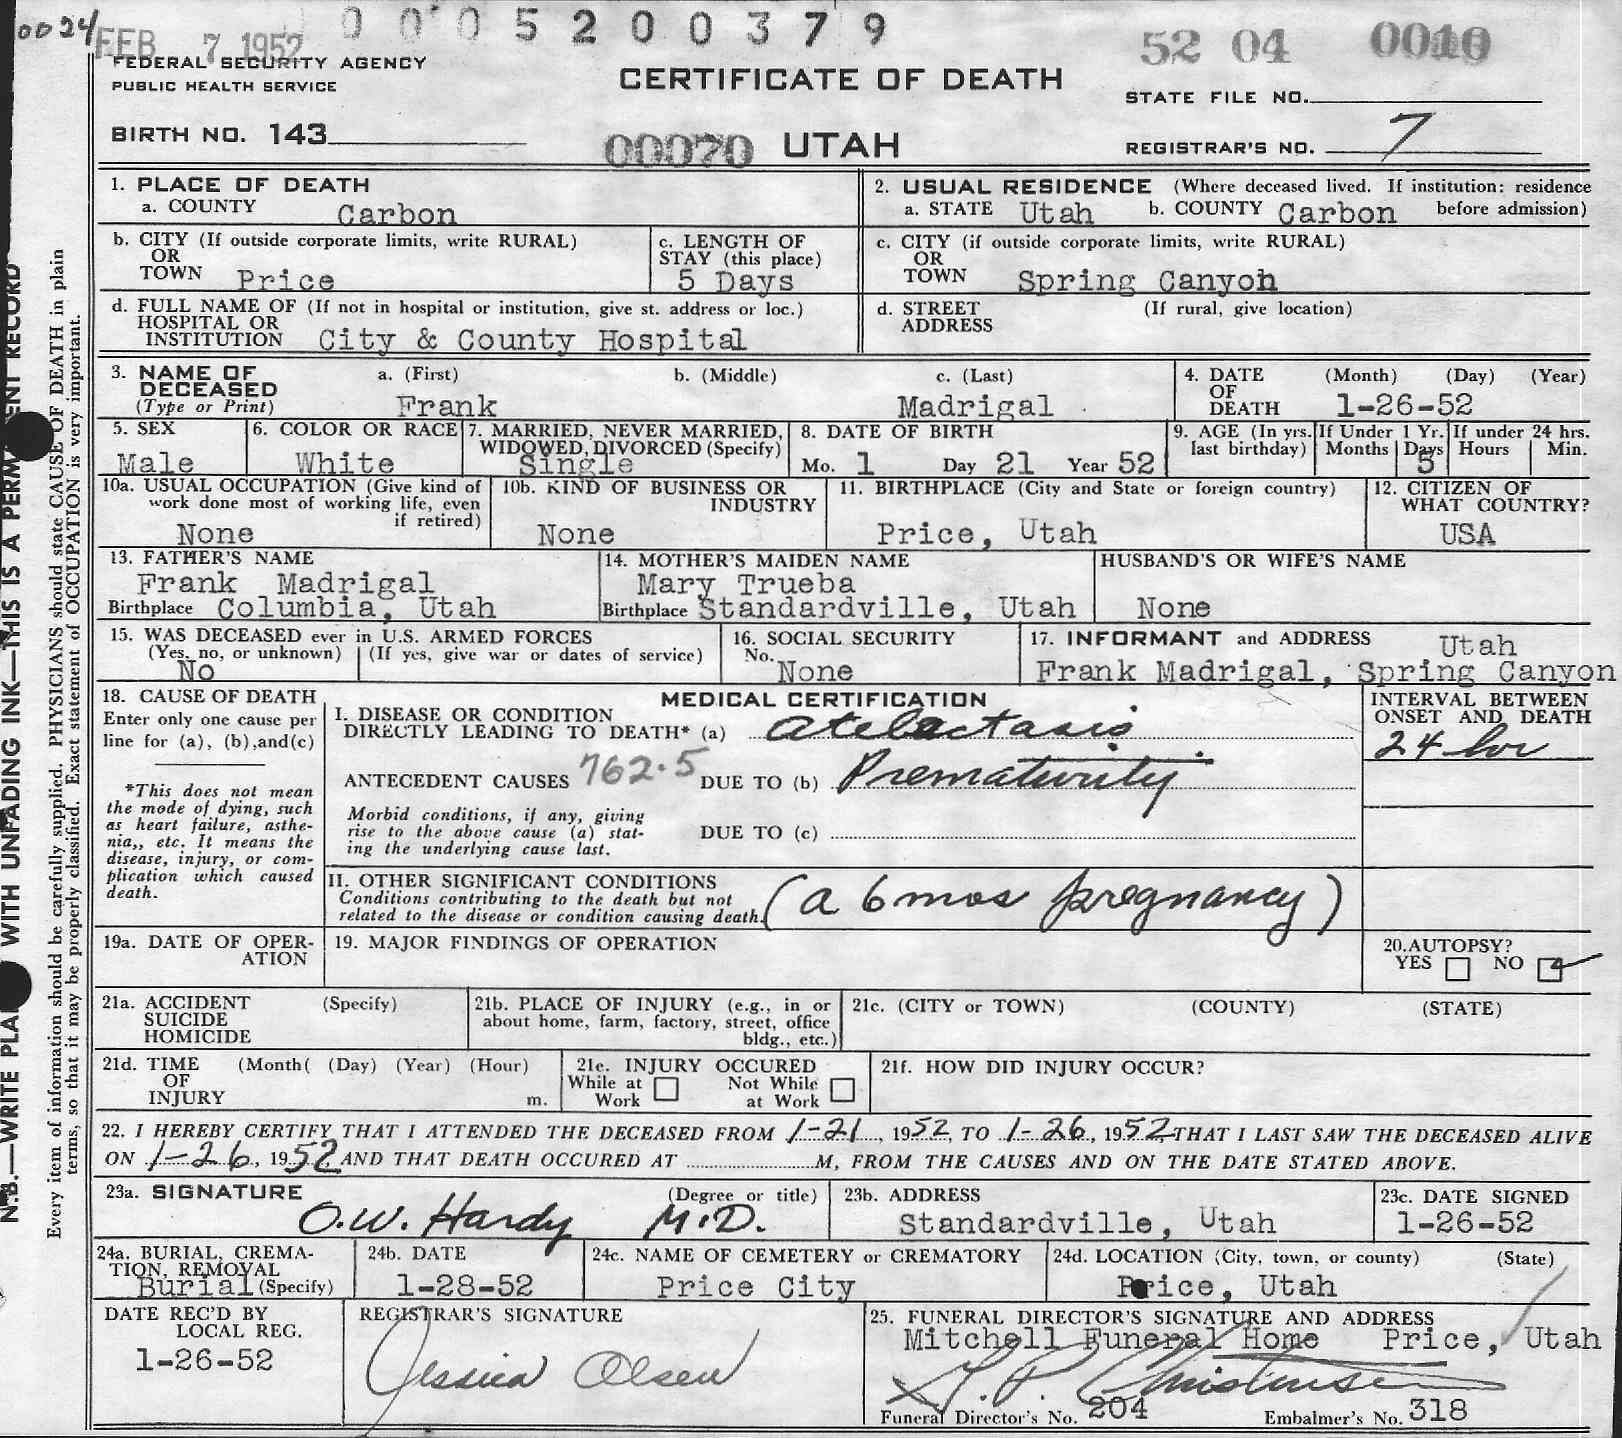 0024
FEB 7 1952
0 0 0 5 2 0 0 3 7 9
52 04 0010
FEDERAL SECURITY AGENCY
PUBLIC HEALTH SERVICE
CERTIFICATE OF DEATH
STATE FILE NO.
BIRTH NO. 143
00070 UTAH
REGISTRAR'S NO. 7
1. PLACE OF DEATH
a. COUNTY Carbon
2. USUAL RESIDENCE (Where deceased lived. If institution: residence before admission)
a. STATE Utah b. COUNTY Carbon
b. CITY (If outside corporate limits, write RURAL)
OR
TOWN Price
c. LENGTH OF
STAY (this place)
5 Days
c. CITY (if outside corporate limits, write RURAL)
OR
TOWN Spring Canyon
d. FULL NAME OF (If not in hospital or institution, give st. address or loc.)
HOSPITAL OR
INSTITUTION City & County Hospital
d. STREET (If rural, give location)
ADDRESS
3. NAME OF a. (First) b. (Middle) c. (Last)
DECEASED
(Type or Print) Frank Madrigal
4. DATE (Month) (Day) (Year)
OF
DEATH 1-26-52
5. SEX
Male
6. COLOR OR RACE
White
7. MARRIED, NEVER MARRIED,
WIDOWED, DIVORCED (Specify)
Single
8. DATE OF BIRTH
Mo. 1 Day 21 Year 52
9. AGE (In yrs.
last birthday)
If Under 1 Yr.
Months Days
5
If under 24 hrs.
Hours Min.
10a. USUAL OCCUPATION (Give kind of
work done most of working life, even
if retired)
None
10b. KIND OF BUSINESS OR
INDUSTRY
None
11. BIRTHPLACE (City and State or foreign country)
Price, Utah
12. CITIZEN OF
WHAT COUNTRY?
USA
13. FATHER'S NAME
Frank Madrigal
Birthplace Columbia, Utah
14. MOTHER'S MAIDEN NAME
Mary Trueba
Birthplace Standardville, Utah
HUSBAND'S OR WIFE'S NAME
None
15. WAS DECEASED ever in U.S. ARMED FORCES
(Yes, no, or unknown) (If yes, give war or dates of service)
No
16. SOCIAL SECURITY
No. None
17. INFORMANT and ADDRESS Utah
Frank Madrigal, Spring Canyon
18. CAUSE OF DEATH
Enter only one cause per
line for (a), (b),and(c)
*This does not mean
the mode of dying, such
as heart failure, asthe-
nia,, etc. It means the
disease, injury, or com-
plication which caused
death.
MEDICAL CERTIFICATION
I. DISEASE OR CONDITION
DIRECTLY LEADING TO DEATH* (a) Atelectasis
ANTECEDENT CAUSES 762.5 DUE TO (b) Prematurity
Morbid conditions, if any, giving
rise to the above cause (a) stat-
ing the underlying cause last.
DUE TO (c)
INTERVAL BETWEEN
ONSET AND DEATH
24 hr
II. OTHER SIGNIFICANT CONDITIONS
Conditions contributing to the death but not
related to the disease or condition causing death.
(a 6 mos pregnancy)
19a. DATE OF OPER-
ATION
19. MAJOR FINDINGS OF OPERATION
20.AUTOPSY?
YES NO
21a. ACCIDENT (Specify)
SUICIDE
HOMICIDE
21b. PLACE OF INJURY (e.g., in or
about home, farm, factory, street, office
bldg., etc.)
21c. (CITY or TOWN) (COUNTY) (STATE)
21d. TIME (Month( (Day) (Year) (Hour)
OF
INJURY m.
21e. INJURY OCCURED
While at Work Not While at Work
21f. HOW DID INJURY OCCUR?
22. I HEREBY CERTIFY THAT I ATTENDED THE DECEASED FROM 1-21, 1952, TO 1-26, 1952 THAT I LAST SAW THE DECEASED ALIVE
ON 1-26, 1952 AND THAT DEATH OCCURED AT M, FROM THE CAUSES AND ON THE DATE STATED ABOVE.
23a. SIGNATURE (Degree or title)
O.W. Hardy M.D.
23b. ADDRESS
Standardville, Utah
23c. DATE SIGNED
1-26-52
24a. BURIAL, CREMA-
TION, REMOVAL
Burial (Specify)
24b. DATE
1-28-52
24c. NAME OF CEMETERY or CREMATORY
Price City
24d. LOCATION (City, town, or county) (State)
Price, Utah
DATE REC'D BY
LOCAL REG.
1-26-52
REGISTRAR'S SIGNATURE
Jessica Olsen
25. FUNERAL DIRECTOR'S SIGNATURE AND ADDRESS
Mitchell Funeral Home Price, Utah
Christensen
Funeral Director's No. 204 Embalmer's No. 318
N.B.—WRITE WITH UNFADING INK—THIS IS A RECORD
Every item of information should be carefully supplied. PHYSICIANS should state CAUSE OF DEATH in plain
terms, so that it may be properly classified. Exact statement of OCCUPATION is very important.